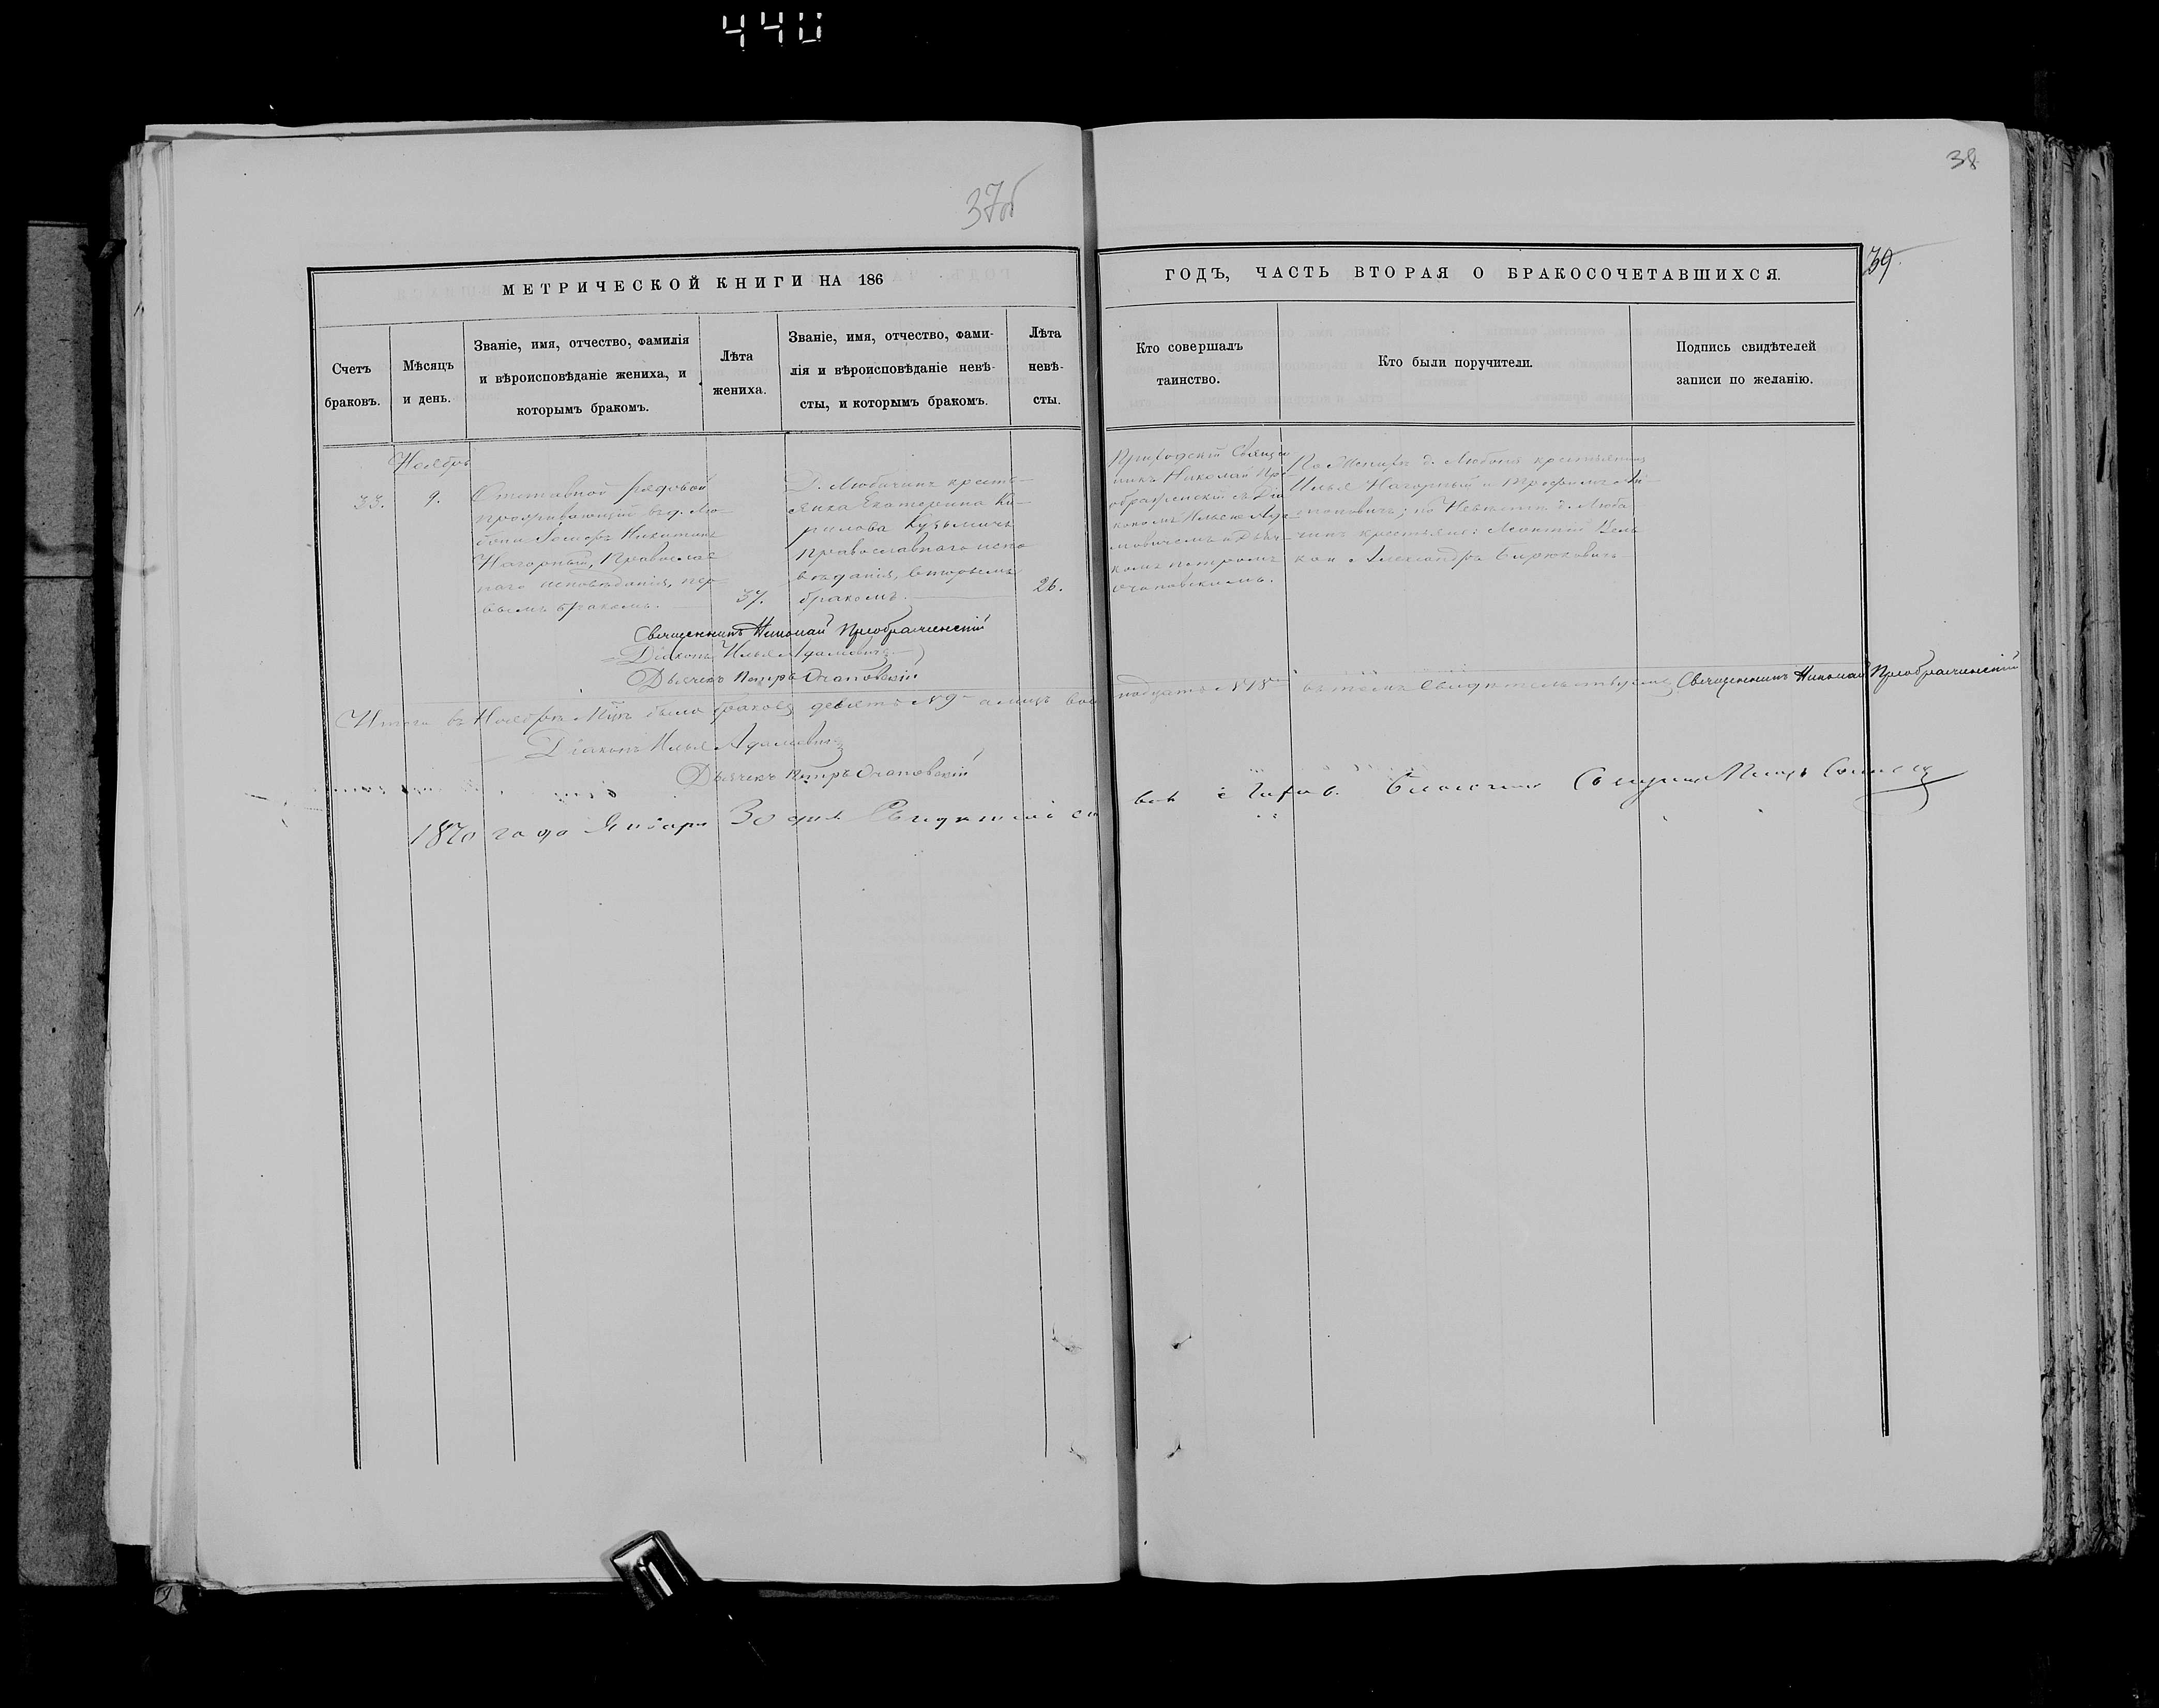 440
38
37об
39.
МЕТРИЧЕСКОЙ КНИГИ НА 186
ГОДЪ, ЧАСТЬ ВТОРАЯ О БРАКОСОЧЕТАВШИХСЯ.
Счетъ
браковъ.
Мѣсяцъ
и день.
Званіе, имя, отчество, фамилія
и вѣроисповѣданіе жениха, и
которымъ бракомъ.
Лѣта
жениха.
Званіе, имя, отчество, фами-
лія и вѣроисповѣданіе невѣ-
сты, и которымъ бракомъ.
Лѣта
невѣ-
сты.
Кто совершалъ
таинство.
Кто были поручители.
Подпись свидѣтелей
записи по желанію.
Ноябрь
33.
9.
Отставной рядовой
проживающій въ д. Лю-
Никитинъ
Нагорный, Православ-
наго исповѣданія, пер-
вымъ бракомъ.
37.
Д. Любачинъ кресть-
янка Екатерина Ки-
рилова Кузьмичъ
православнаго испо-
вѣданія, вторымъ
бракомъ.
26.
Приходскій Священ-
никъ Николай Пре-
ображенскій съ Діа-
кономъ Ильею Ада-
мовичемъ и Дьяч-
комъ Петромъ
Очаповскимъ.
По Женихѣ д. крестьяне
Илья Нагорный и Трофимъ
по Невѣстѣ д. Люба-
чинъ крестьяне: Леонтій
Александръ Бирюковичъ
Священникъ Николай Преображенскій
Діаконъ Илья Адамовичъ
Дьячекъ Петръ Очаповскій
Итого въ Ноябрѣ М͠цѣ было браковъ девять № 9 а
въ томъ свидѣтельствуемъ Священникъ Николай Преображенскій
Діаконъ Илья Адамовичъ
Дьячекъ Петръ Очаповскій
1870 года Января 30 дня